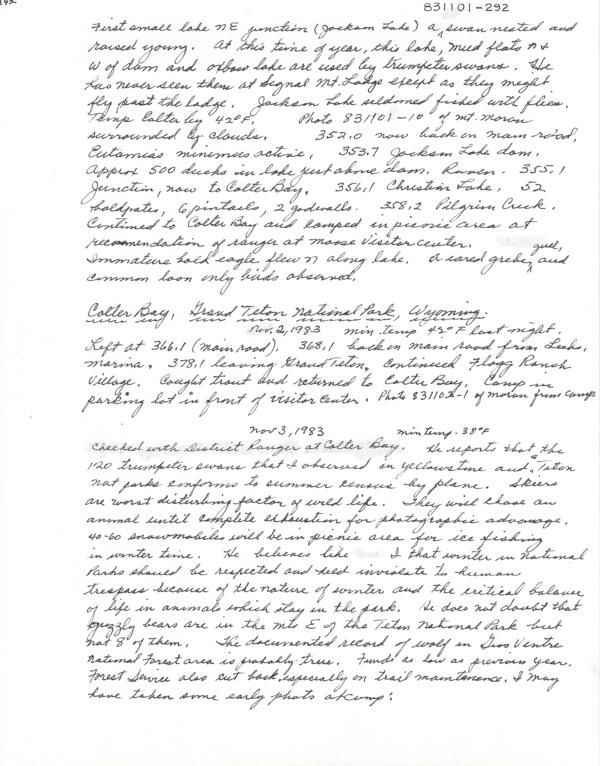 292
831101-292
First small lake NE junction (Jackson Lake) a swan nested and
raised young. At this time of year, this lake, mud flats N &
W of dam and oxbow lake are used by trumpeter swans. He
has never seen them at Signal Mt. Lodge except as they might
fly past the lodge. Jackson Lake seldomed fished with flies.
Temp Colter by 42°F. Photo 831101-10 of Mt. Moran
surrounded by clouds. 352.0 now back on main road.
Eutamias minemus active. 353.7 Jackson Lake dam.
Approx 500 ducks in lake just above dam. Raven. 355.1
Junction, now to Colter Bay. 356.1 Christian Lake, 52
baldpates, 6 pintails, 2 gadwalls. 358.2 Pilgrim Creek.
Contined to Colter Bay and camped in picnic area at
recomendation of ranger at Moose Visitor center. gull,
Immature bald eagle flew N along lake. A eared grebe, and
common loon only birds observed.
Colter Bay, Grand Teton National Park, Wyoming.
Nov. 2, 1983 min. temp 42°F last night.
Left at 366.1 (main road). 368.1 back on main road from Leeks
marina. 378.1 leaving Grand Teton. Continued Flagg Ranch
Village. Caught trout and returned to Colter Bay. Camp in
parking lot in front of visitor center. Photo 831102-1 of Moran from camp
Nov 3, 1983 min temp. 38°F
Checked with District Ranger at Colter Bay. He reports that the
120 trumpeter swans that I observed in Yellowstone and Teton
nat parks conforms to summer census by plane. Skiers
are worst disturbing factor of wild life. They will chase an
animal until complete exhaustion for photographic advantage.
40-60 snowmobiles will be in picnic area for ice fishing
in winter time. He believes like I that winter in National
Parks should be respected and held inviolate to human
trespass because of the nature of winter and the critical balance
of life in animals which stay in the park. He does not doubt that
grizzly bears are in the mts E of the Teton National Park but
not 8 of them. The documented record of wolf in Gros Ventre
National Forest area is probably true. Funds as low as previous year.
Forest Service also cut back, especially on trail maintenance. I may
have taken some early photos at camp: